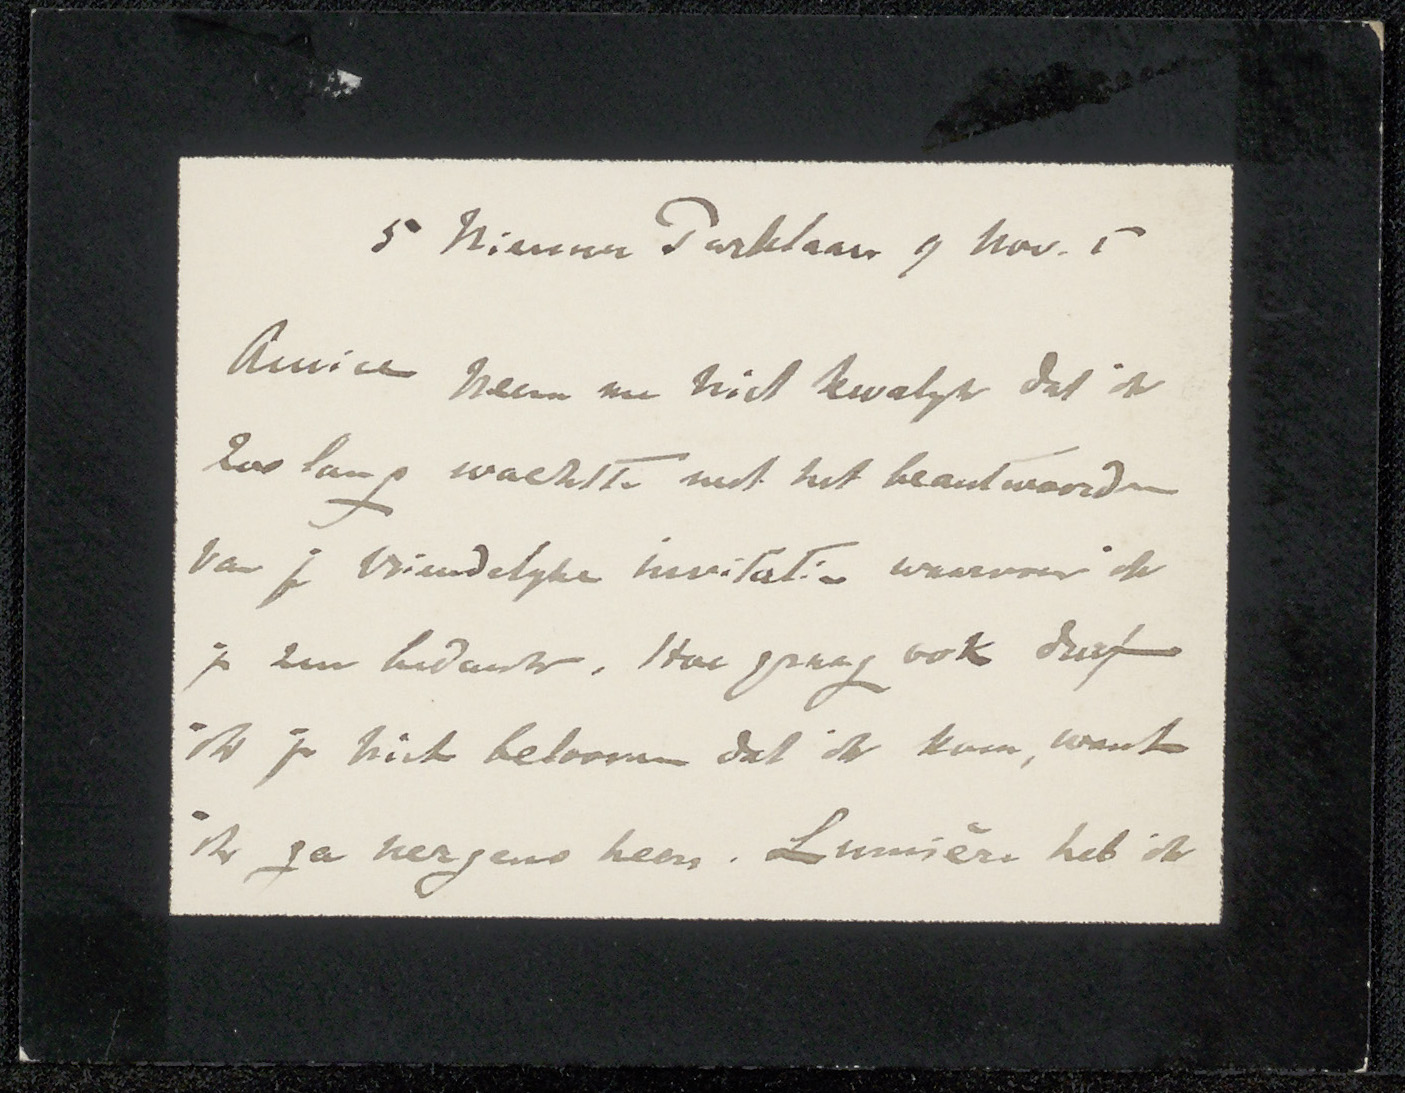 5 Nieuwe Parklaan 9 Nov. 5
Amice Neem me niet kwalijk dat ik
zoo lang wachtte met het beantwoorden
van je vriendelijke invitatie waarvoor ik
je zeer bedank. Hoe graag ook durf
ik je niet beloven dat ik kom, want
ik ga nergens heen. Lumière heb ik